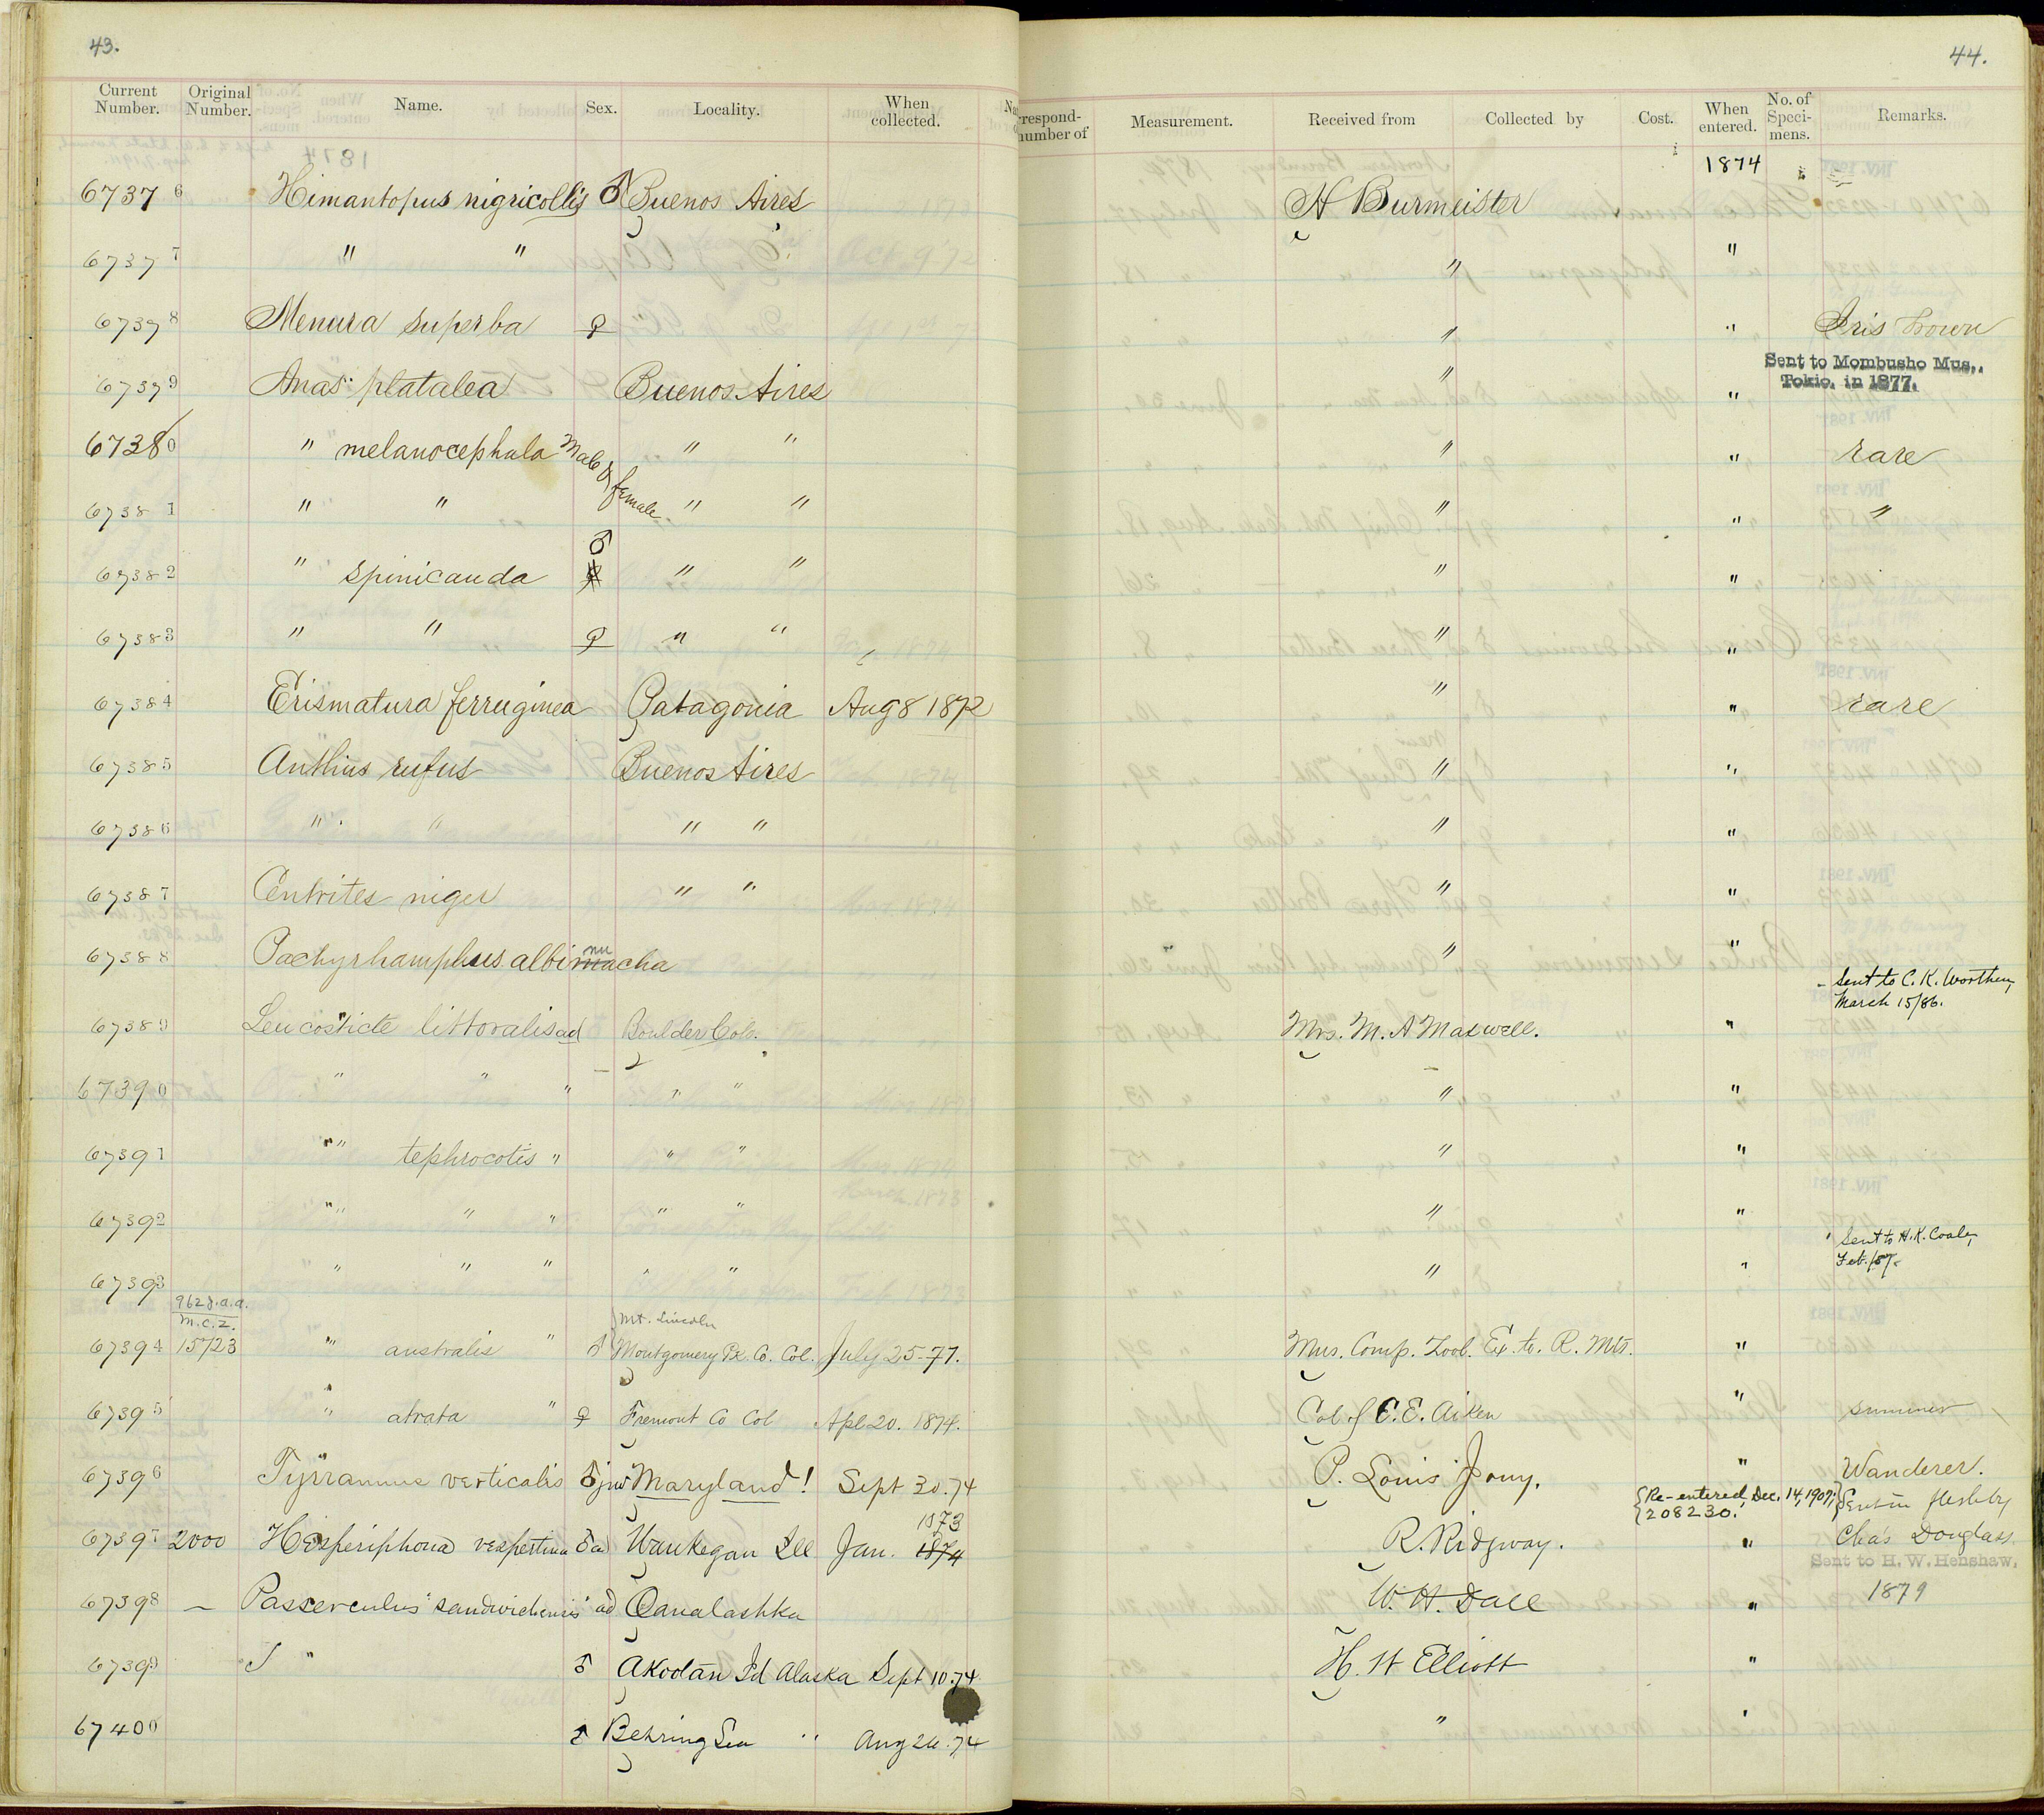 43.
44.
Current Number. Original Number. Name. Sex. Locality. When collected. Na
respond- number of Measurement. Received from Collected by Cost. When entered. No. of Speci- mens. Remarks.
1874
67376 Himantopus nigricollis ♂ Buenos Aires H Burmeister
67377 " " " "
67378 Menura superba ♀ " " Iris brown
Sent to Mombusho Mus., Tokio, in 1877.
67379 Anas platalea Buenos Aires " "
67380 " melanocephala Male & female " " " " rare
67381 " " " " " " "
67382 " spinicauda ♂ " " " "
67383 " " ♀ " " " "
67384 Erismatura ferruginea Patagonia Aug 8 1872 " " rare
67385 Anthus rufus Buenos Aires " "
67386 " " " " " "
67387 Centrites niger " " " "
67388 Pachyrhamphus albinucha " "
- Sent to C. K. Worthen, March 15/86.
67389 Leucosticte littoralis ad Boulder Col. Mrs. M. A Maxwell. "
67390 " " " " " " "
67391 " tephrocotis " " " " "
67392 " " " " " " "
Sent to H. K. Coale, Feb. /87.
67393 " " " " " " "
962 J.A.A.
M.C.Z.
Mt. Lincoln
67394 15723 " australis " ♂ Montgomery Pk. Co. Col. July 25-71. Mus. Comp. Zool. Ex. to. R. Mts. "
67395 " atrata " ♀ Fremont Co Col Apl 20. 1874. Col. of C. E. Aiken " summer
67396 Tyrannus verticalis ♂ juv Maryland! Sept 30.74 P. Louis Jouy. " Wanderer.
{Re-entered, Dec. 14, 1907; 208230.} Sent in flesh by
1873
67397 2000 Hesperiphona vespertina ♂ ad Waukegan Ill Jan. 1874 R. Ridgway. " Chas Douglass.
Sent to H. W. Henshaw,
67398 – Passerculus sandwichensis ad Oanalashka W. H. Dall " 1879
67399 " ♂ Akootan Id Alaska Sept 10.74 H. W Elliott "
67400 ♂ Behring Sea " Aug 26.74 " "